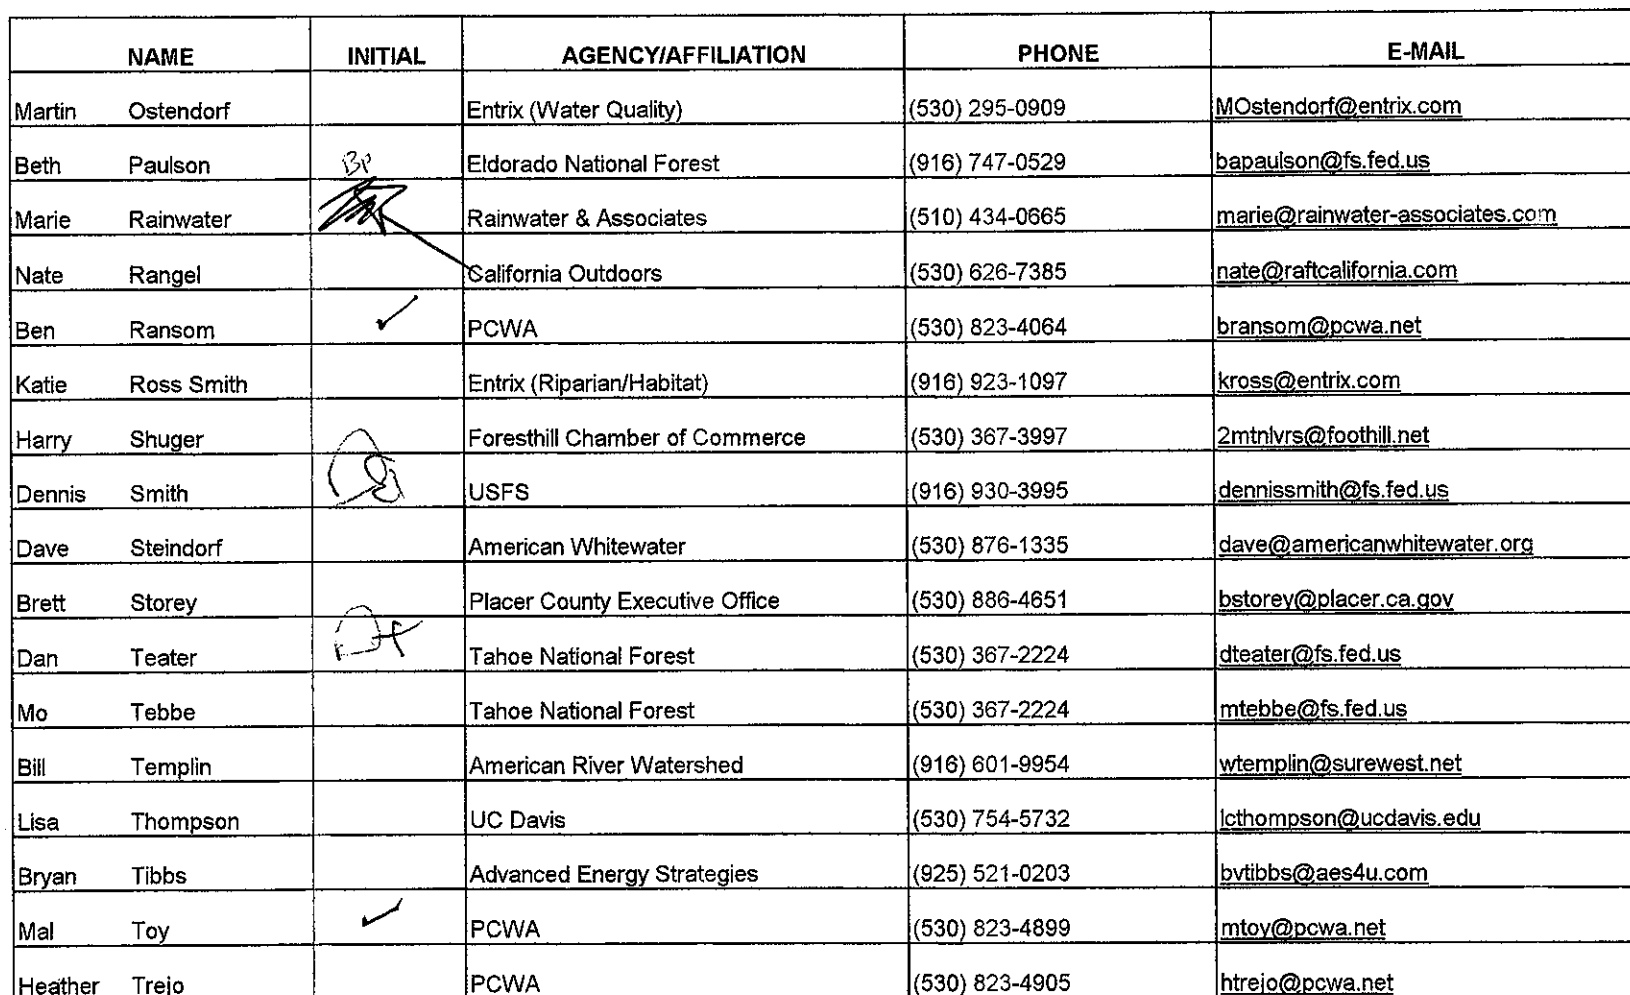 NAME INITIAL AGENCY/AFFILIATION PHONE E-MAIL
Martin Ostendorf Entrix (Water Quality) (530) 295-0909 MOstendorf@entrix.com
Beth Paulson BP Eldorado National Forest (916) 747-0529 bapaulson@fs.fed.us
Marie Rainwater Rainwater & Associates (510) 434-0665 marie@rainwater-associates.com
Nate Rangel California Outdoors (530) 626-7385 nate@raftcalifornia.com
Ben Ransom ✓ PCWA (530) 823-4064 bransom@pcwa.net
Katie Ross Smith Entrix (Riparian/Habitat) (916) 923-1097 kross@entrix.com
Harry Shuger Foresthill Chamber of Commerce (530) 367-3997 2mtnlvrs@foothill.net
Dennis Smith USFS (916) 930-3995 dennissmith@fs.fed.us
Dave Steindorf American Whitewater (530) 876-1335 dave@americanwhitewater.org
Brett Storey Placer County Executive Office (530) 886-4651 bstorey@placer.ca.gov
Dan Teater DT Tahoe National Forest (530) 367-2224 dteater@fs.fed.us
Mo Tebbe Tahoe National Forest (530) 367-2224 mtebbe@fs.fed.us
Bill Templin American River Watershed (916) 601-9954 wtemplin@surewest.net
Lisa Thompson UC Davis (530) 754-5732 lcthompson@ucdavis.edu
Bryan Tibbs Advanced Energy Strategies (925) 521-0203 bvtibbs@aes4u.com
Mal Toy ✓ PCWA (530) 823-4899 mtoy@pcwa.net
Heather Trejo PCWA (530) 823-4905 htrejo@pcwa.net